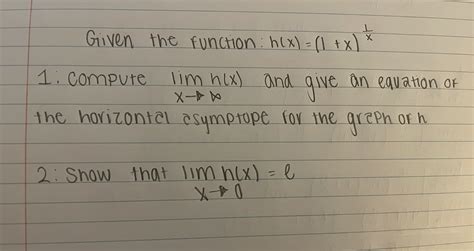 Given the function: h(x) = (1 + x)^(1/x)
1: compute lim h(x) and give an equation of
x→∞
the horizontal asymptope for the graph of h
2: Show that lim h(x) = e
x→0